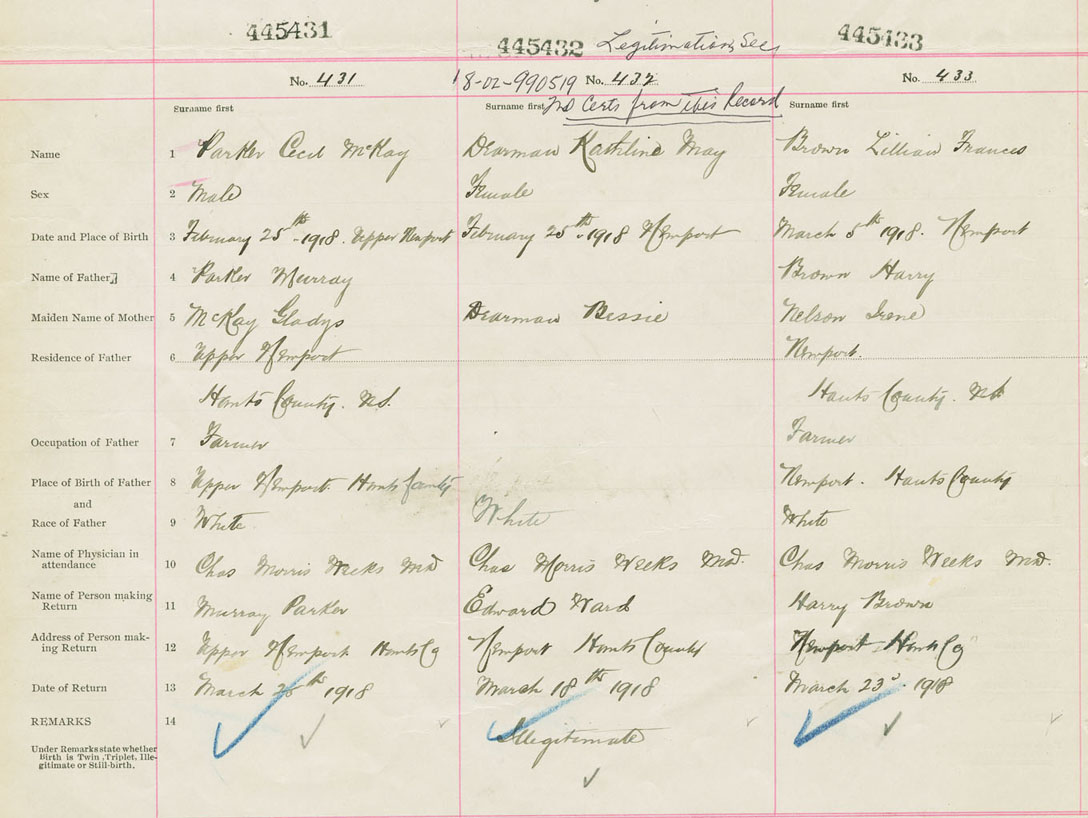 445431
445432 Legitimation, See
445433
No. 431
18-02-990519 No. 432
No. 433
Surname first
Surname first No Certs from this Record
Surname first
Name 1 Parker Cecil McKay Dearman Kathline May Brown Lillian Frances
Sex 2 Male Female Female
Date and Place of Birth 3 February 25th 1918. Upper Newport February 25th 1918 Newport March 5th 1918. Newport
Name of Father 4 Parker Murray Brown Harry
Maiden Name of Mother 5 McKay Gladys Dearman Bessie Nelson Irene
Residence of Father 6 Upper Newport Newport.
Hants County. N.S. Hants County. N.S.
Occupation of Father 7 Farmer Farmer
Place of Birth of Father 8 Upper Newport. Hants County Newport. Hants County
and
Race of Father 9 White White White
Name of Physician in
attendance 10 Chas Morris Weeks Md Chas Morris Weeks Md. Chas Morris Weeks Md.
Name of Person making
Return 11 Murray Parker Edward Ward Harry Brown
Address of Person mak-
ing Return 12 Upper Newport Hants Co Newport Hants County Newport Hants Co
Date of Return 13 March 25th 1918 March 18th 1918 March 23d 1918
REMARKS 14 Illegitimate
Under Remarks state whether
Birth is Twin, Triplet, Ille-
gitimate or Still-birth.